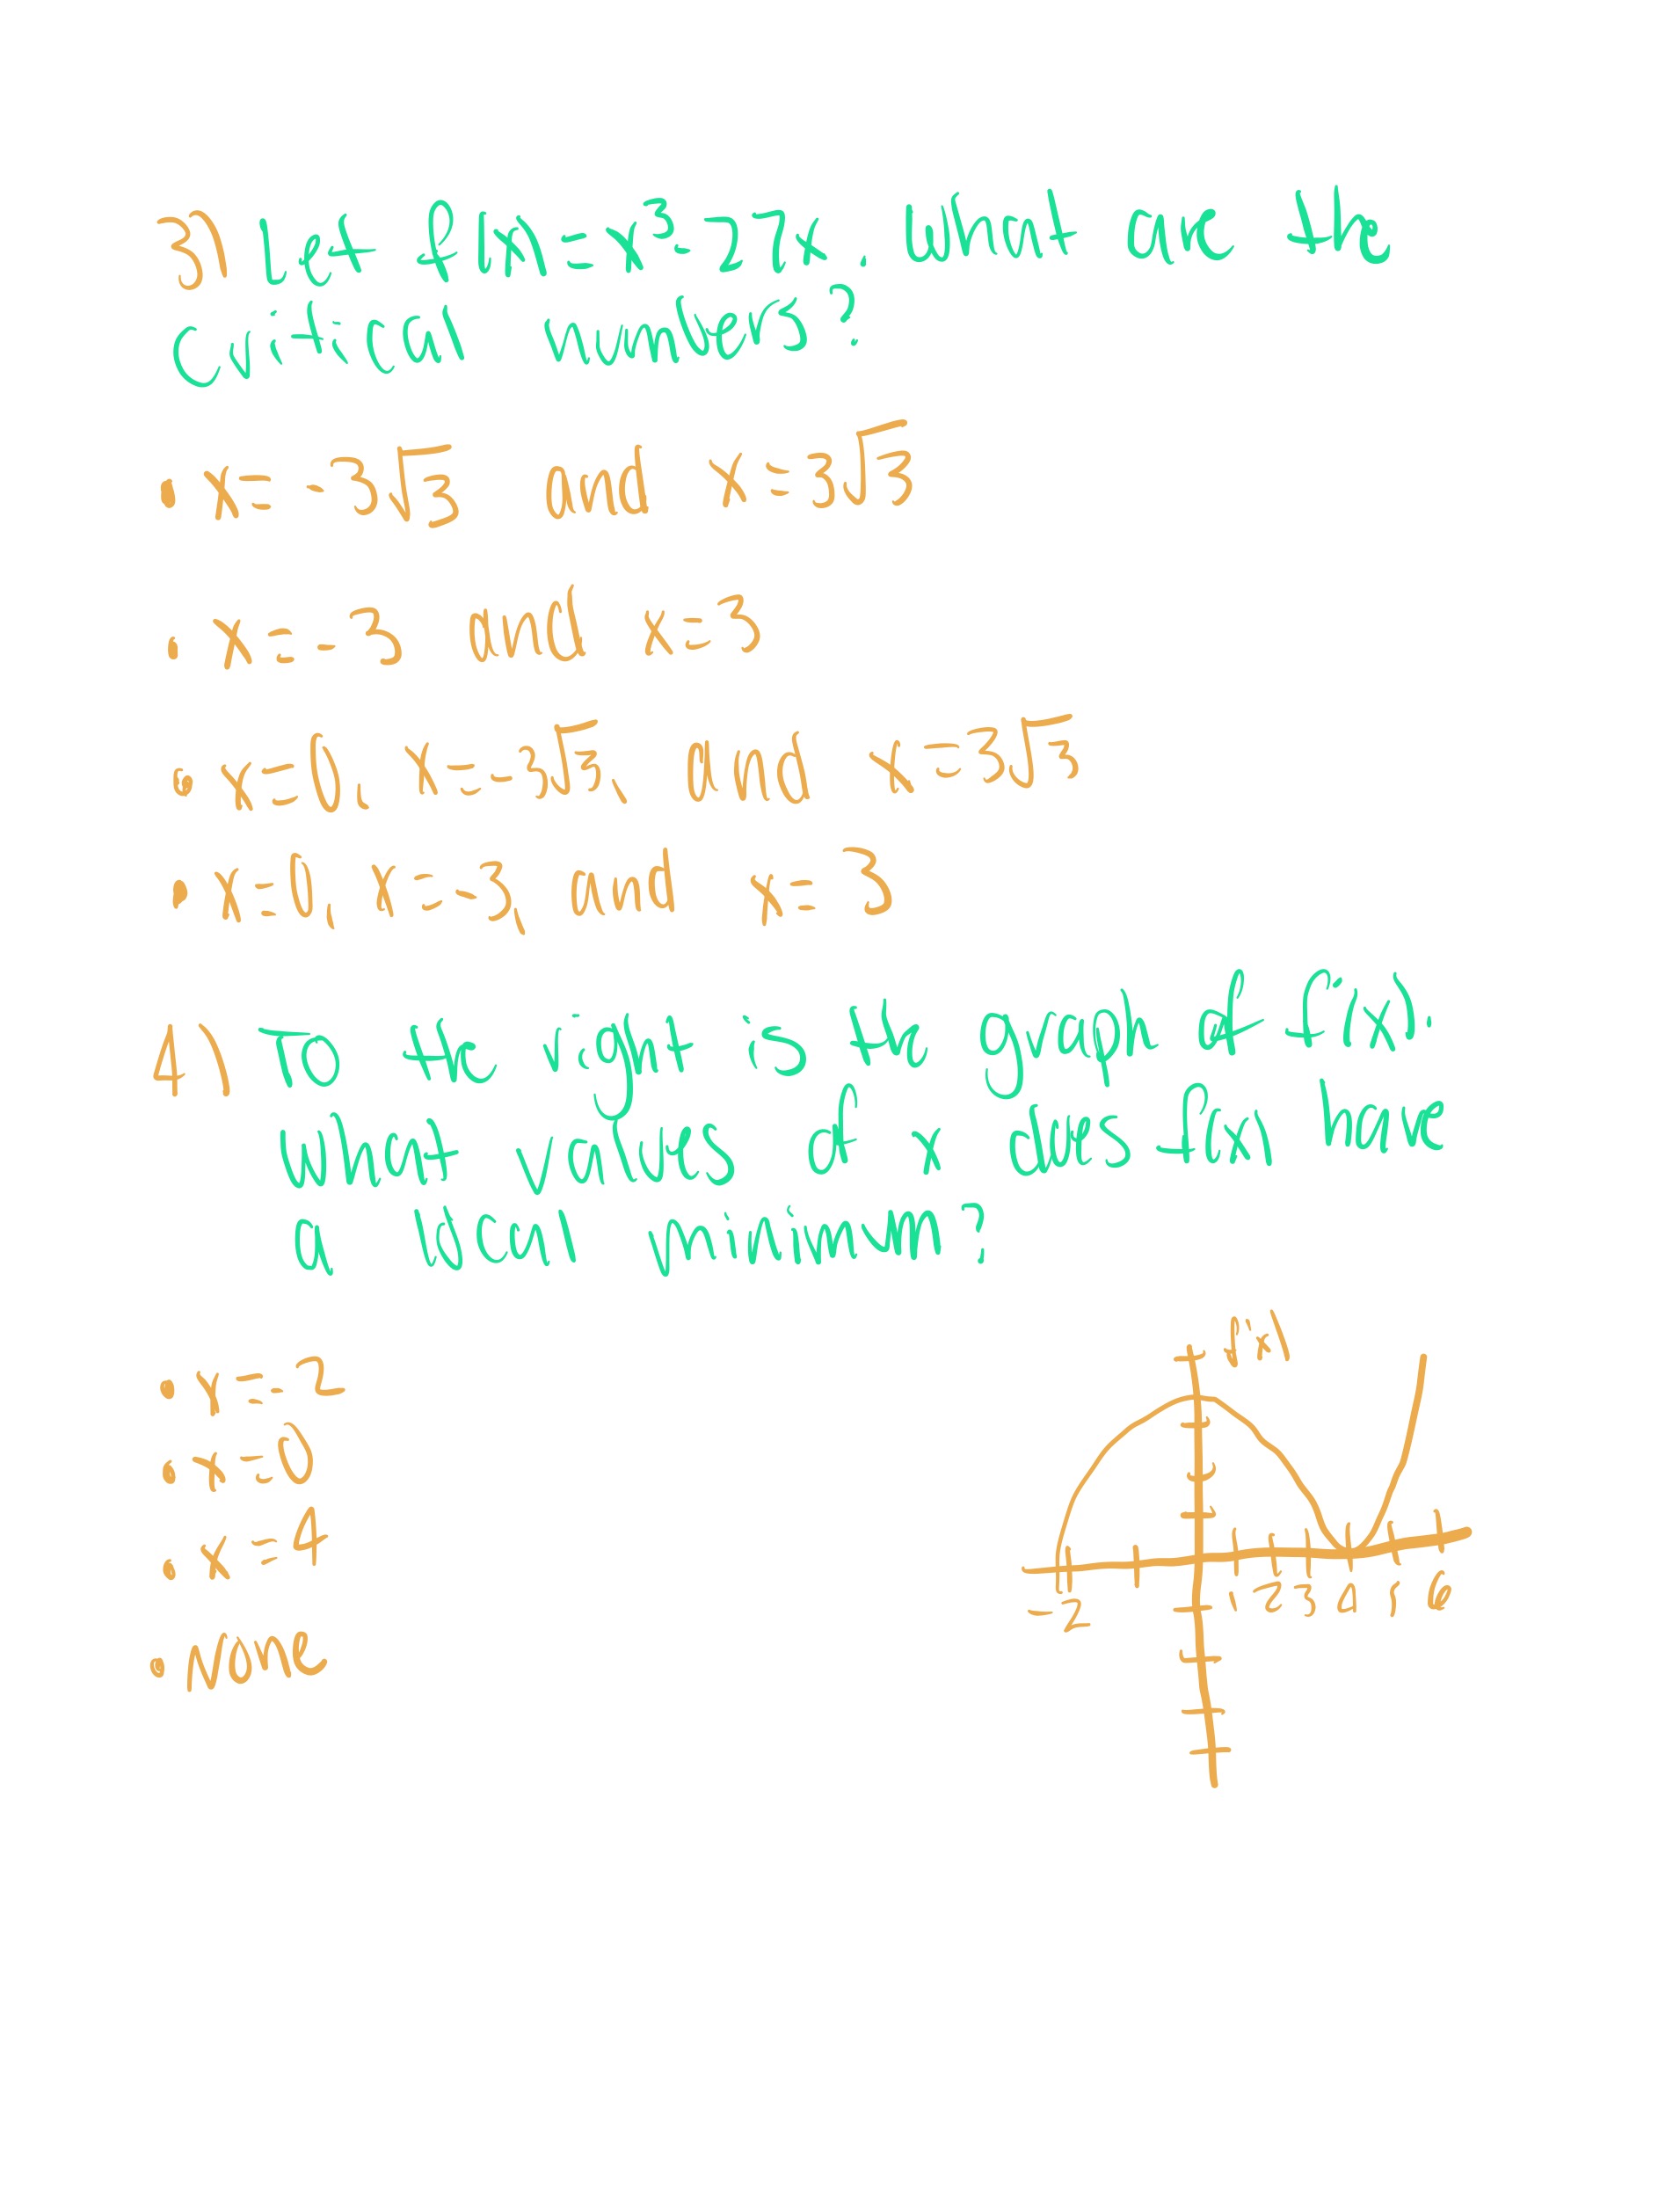 3) Let f(x) = x³ - 27x. What are the
Critical numbers?
• x = -3√3 and x = 3√3
• x = -3 and x = 3
• x = 0, x = -3√3, and x = 3√3
• x = 0, x = -3, and x = 3
4) To the right is the graph of f'(x).
what values of x does f(x) have
a local minimum?
f'(x)
• x = -2
• x = 0
• x = 4
-2 1 2 3 4 5 6
• None